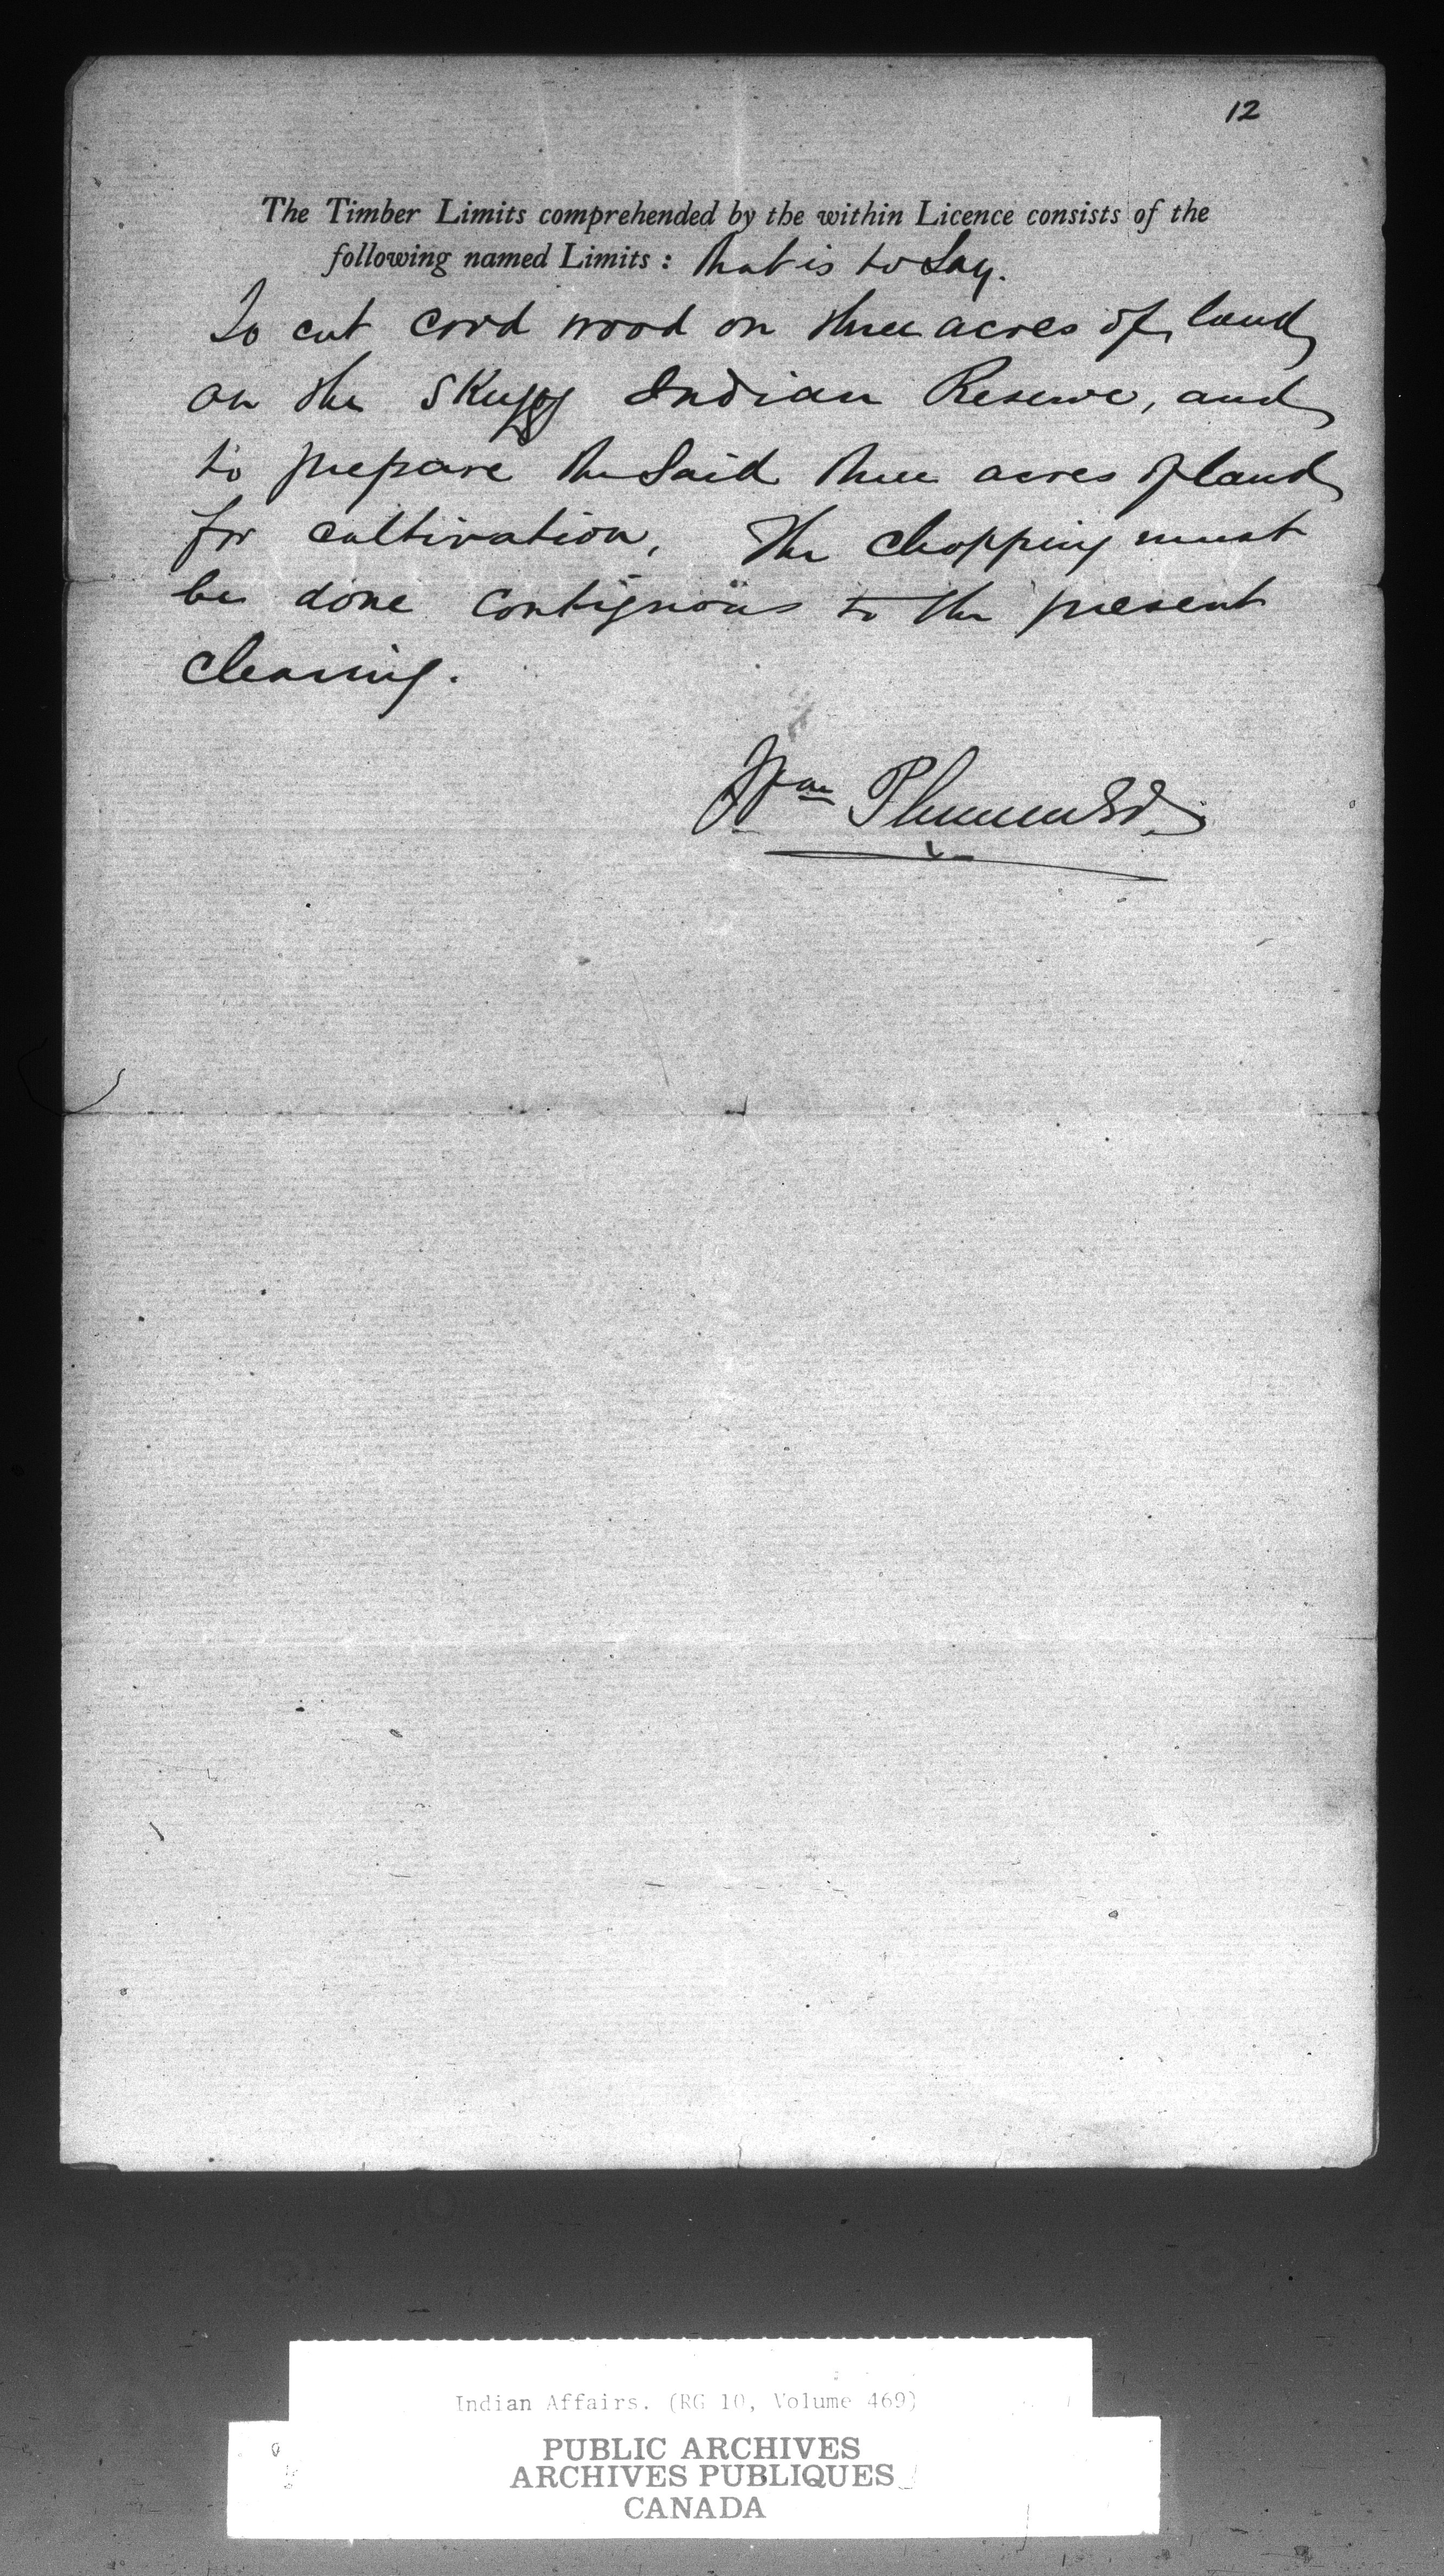 12
The Timber Limits comprehended by the within Licence consists of the
following named Limits : that is to Say.
To cut cord wood on three acres of land
on the Skugog Indian Reserve, and
to prepare the Said three acres of land
for cultivation, The chopping must
be done contiguous to the present
clearing.
Wm Plummer
Indian Affairs. (RG 10, Volume 469)
PUBLIC ARCHIVES
ARCHIVES PUBLIQUES
CANADA